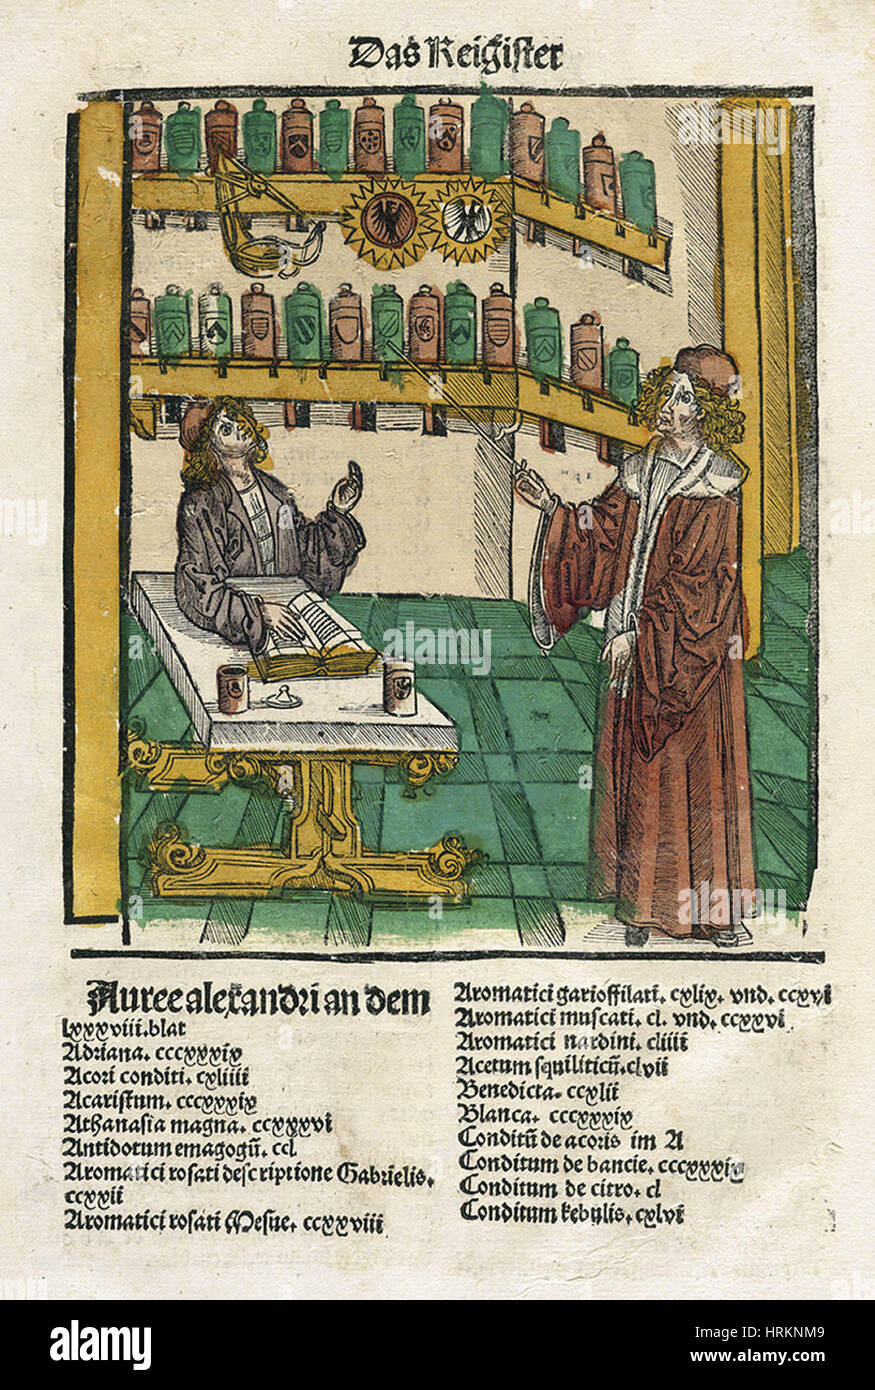 Das Reigister
Auree alexandri an dem
lxxxviii. blat
Adriana. cccxxxix
Acori conditi. cxliiii
Acaristum. cccxxxix
Athanasia magna. ccxxxvi
Antidotum emagogū. ccl
Aromatici rosati descriptione Gabrielis.
ccxxii
Aromatici rosati Mesue. ccxxviii
Aromatici gariofilati. cxlix. vnd. ccxvi
Aromatici muscati. cl. vnd. ccxxvi
Aromatici nardini. cliiii
Acetum squiliticū. clvii
Benedicta. ccxlii
Blanca. cccxxxix
Conditū de acoris im A
Conditum de bancie. cccxxxix
Conditum de citro. cl
Conditum kebulis. cxlvi
alamy stock photo
HRKNM9
www.alamy.com